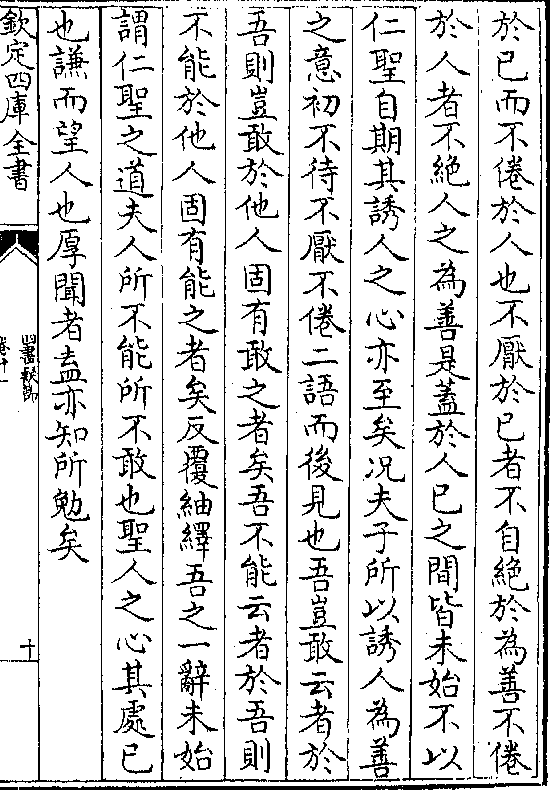 於已而不倦於人也不厭於已者不自絕於為善不倦
於人者不絕人之為善是蓋於人已之間皆未始不以
仁聖自期其誘人之心亦至矣况夫子所以誘人為善
之意初不待不厭不倦二語而後見也吾豈敢云者於
吾則豈敢於他人固有敢之者矣吾不能云者於吾則
不能於他人固有能之者矣反覆紬繹吾之一辭未始
謂仁聖之道夫人所不能所不敢也聖人之心其處已
也謙而望人也厚聞者盍亦知所勉矣
欽定四庫全書
十